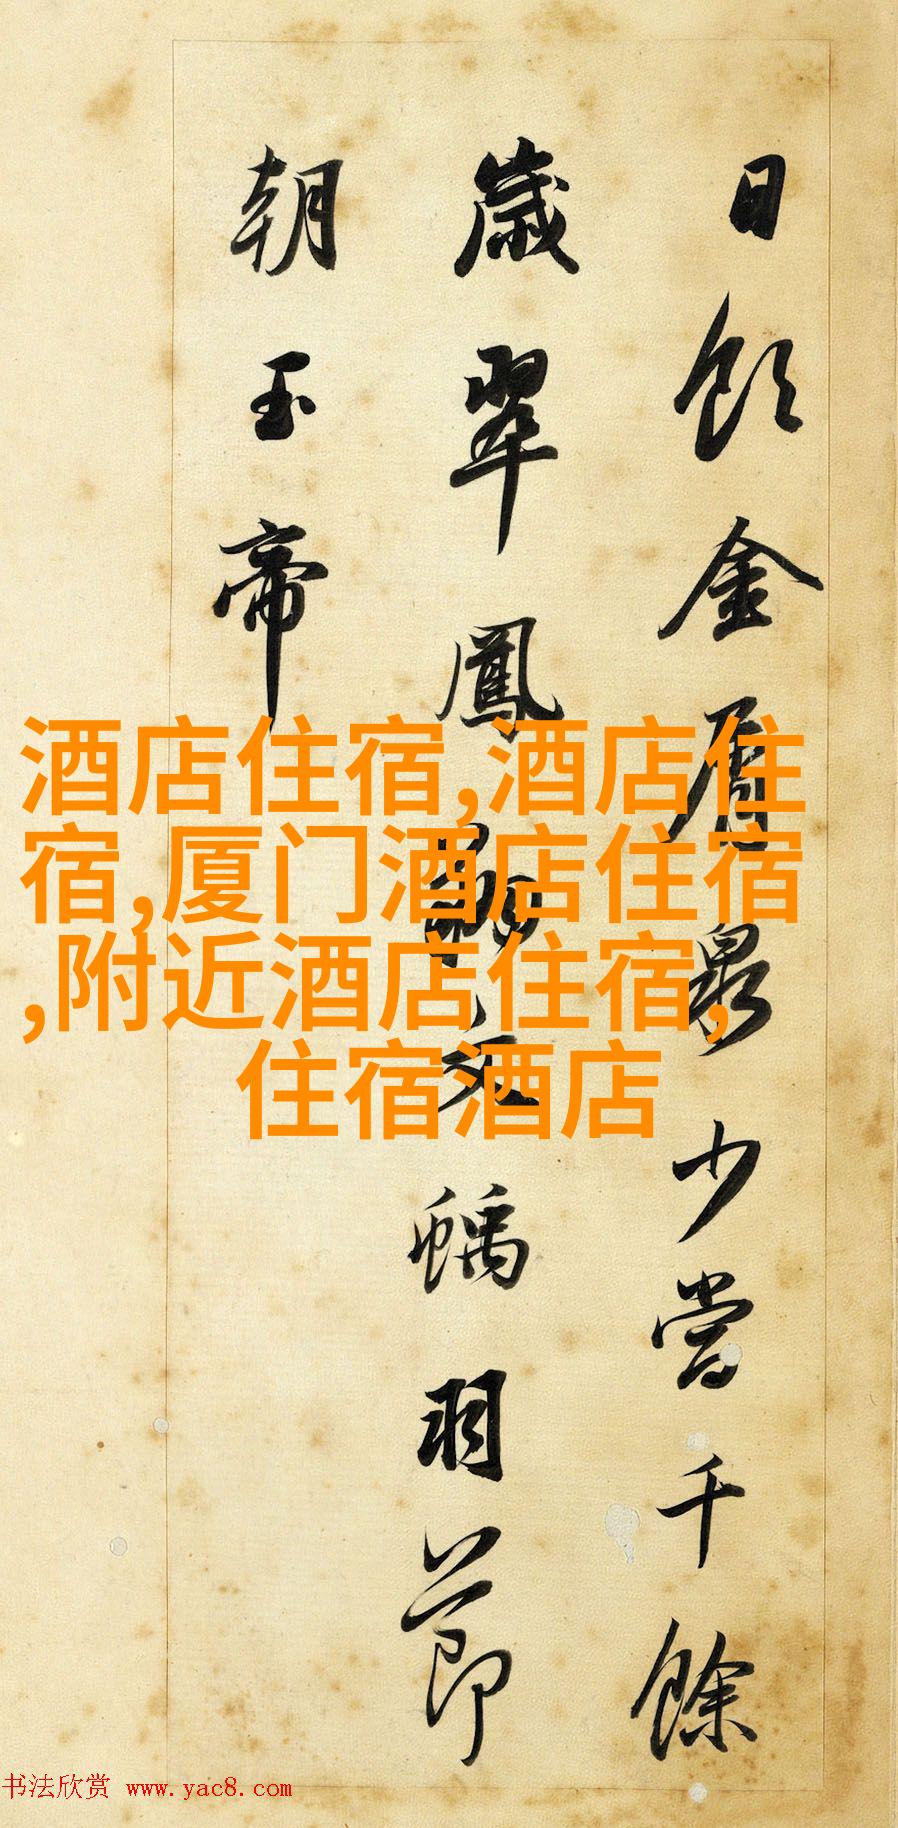 日飲金屑泉少當千餘
歲翠鳳翊文螭羽節
朝玉帝
酒店住宿,酒店住
宿,厦门酒店住宿
,附近酒店住宿,
住宿酒店
书法欣赏 www.yac8.com